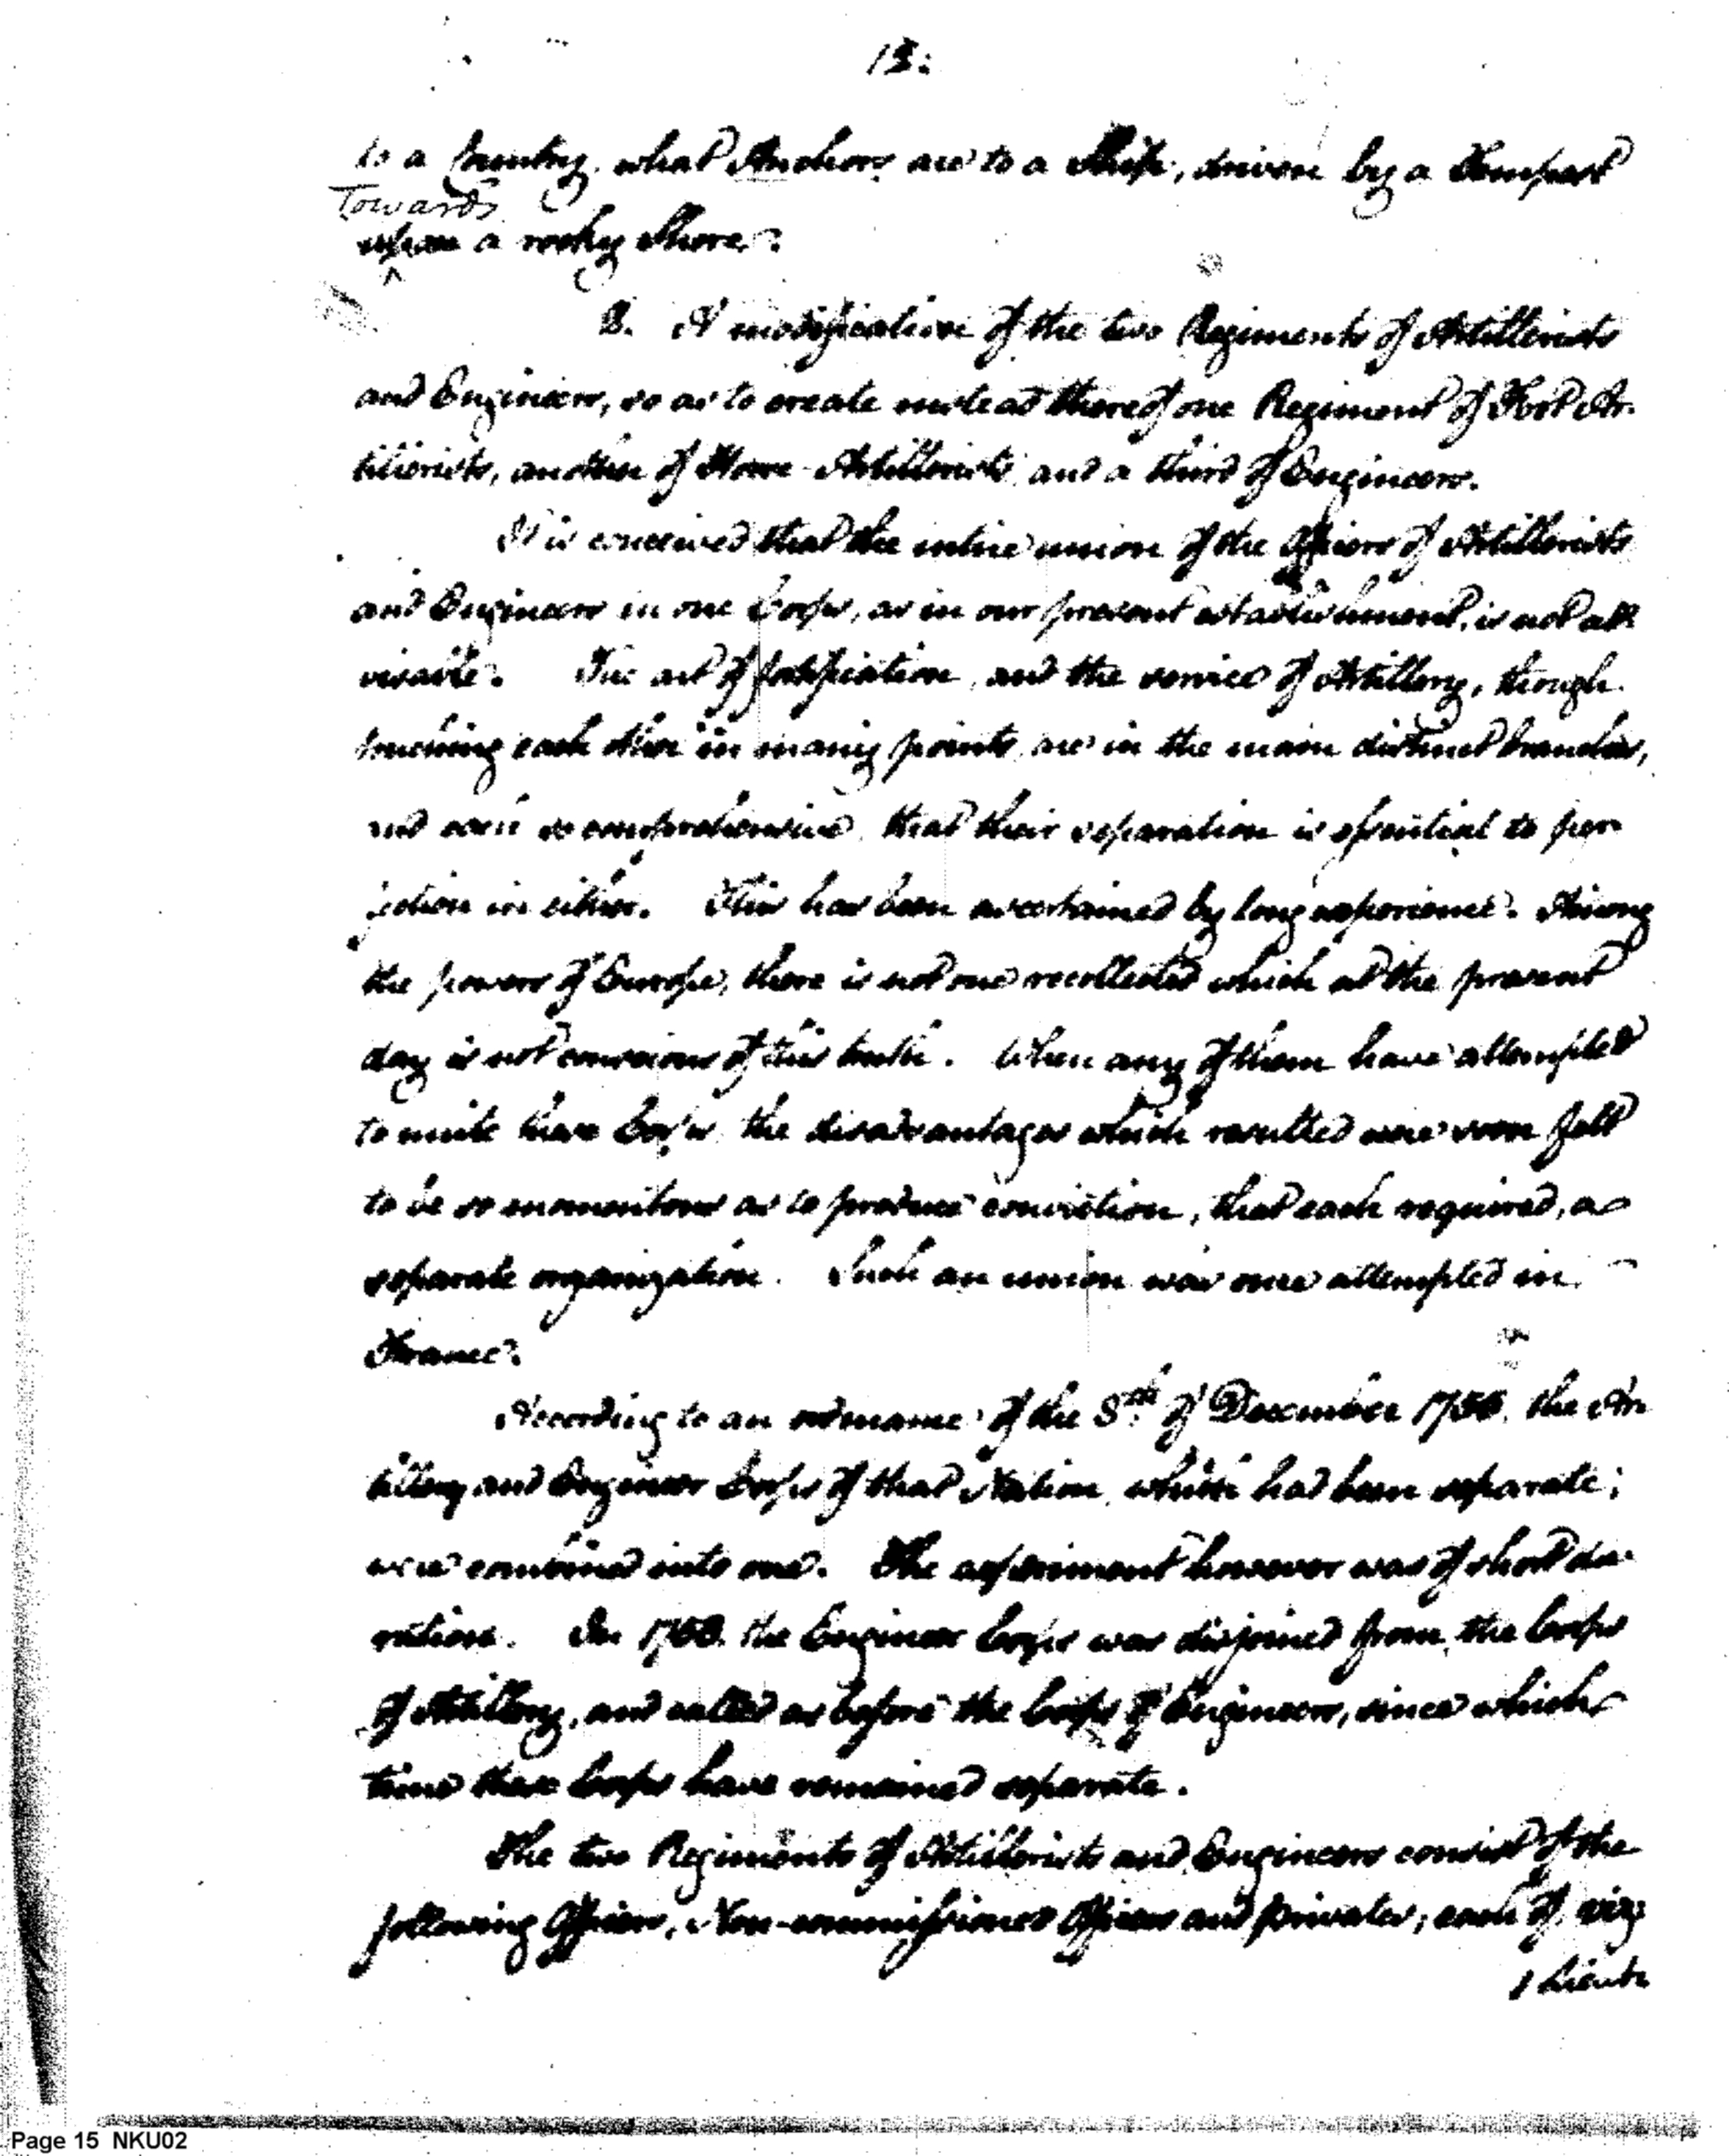 13.
to a Country, what Anchors are to a Ship, driven by a Tempest
Towards
upon a rocky Shore.
^
2. A modification of the two Regiments of Artillerists
and Engineers, so as to create instead thereof one Regiment of Foot Ar-
tillerists, another of Horse-Artillerists, and a third of Engineers.
It is conceived that the intire union of the Officers of Artillerists
and Engineers in one Corps, as in our present establishment, is not ad-
visable. The art of fortification, and the service of Artillery, though
touching each other in many points, are in the main distinct branches,
and each so comprehensive, that their separation is essential to per-
fection in either. This has been ascertained by long experience. Among
the powers of Europe, there is not one recollected which at the present
day is not conscious of this truth. When any of them have attempted
to unite these Corps, the disadvantages which resulted were soon felt
to be so momentous as to produce conviction, that each required, a
separate organization. Such an union was once attempted in
France.
According to an ordinance of the 8th of December 1755, the Ar-
tillery and Engineer Corps of that Nation, which had been separate;
were combined into one. The experiment however was of short du-
ration. In 1758, the Engineer Corps was disjoined from, the Corps
of Artillery, and called as before the Corps of Engineers, since which
time these Corps have remained separate.
The two Regiments of Artillerists and Engineers consist of the
following Officers, Non-commissioned Officers and privates; each of, viz;
1 Lieut:
Page 15 NKU02